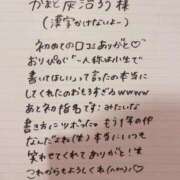 かまど炭治郎様
(漢字かけないよー)
初めての口コミありがと♡
おりぴの「一人称は小生で
書いてほしい」って言ったの本当に
してくれたのおもろすぎるwwww
あと初指名です:みたいな
書き方にツボったw もう草の件
なんだよねw(米)本当にいつも
笑わせてくれてありがと!笑
これからもよろしくね(^^)♡